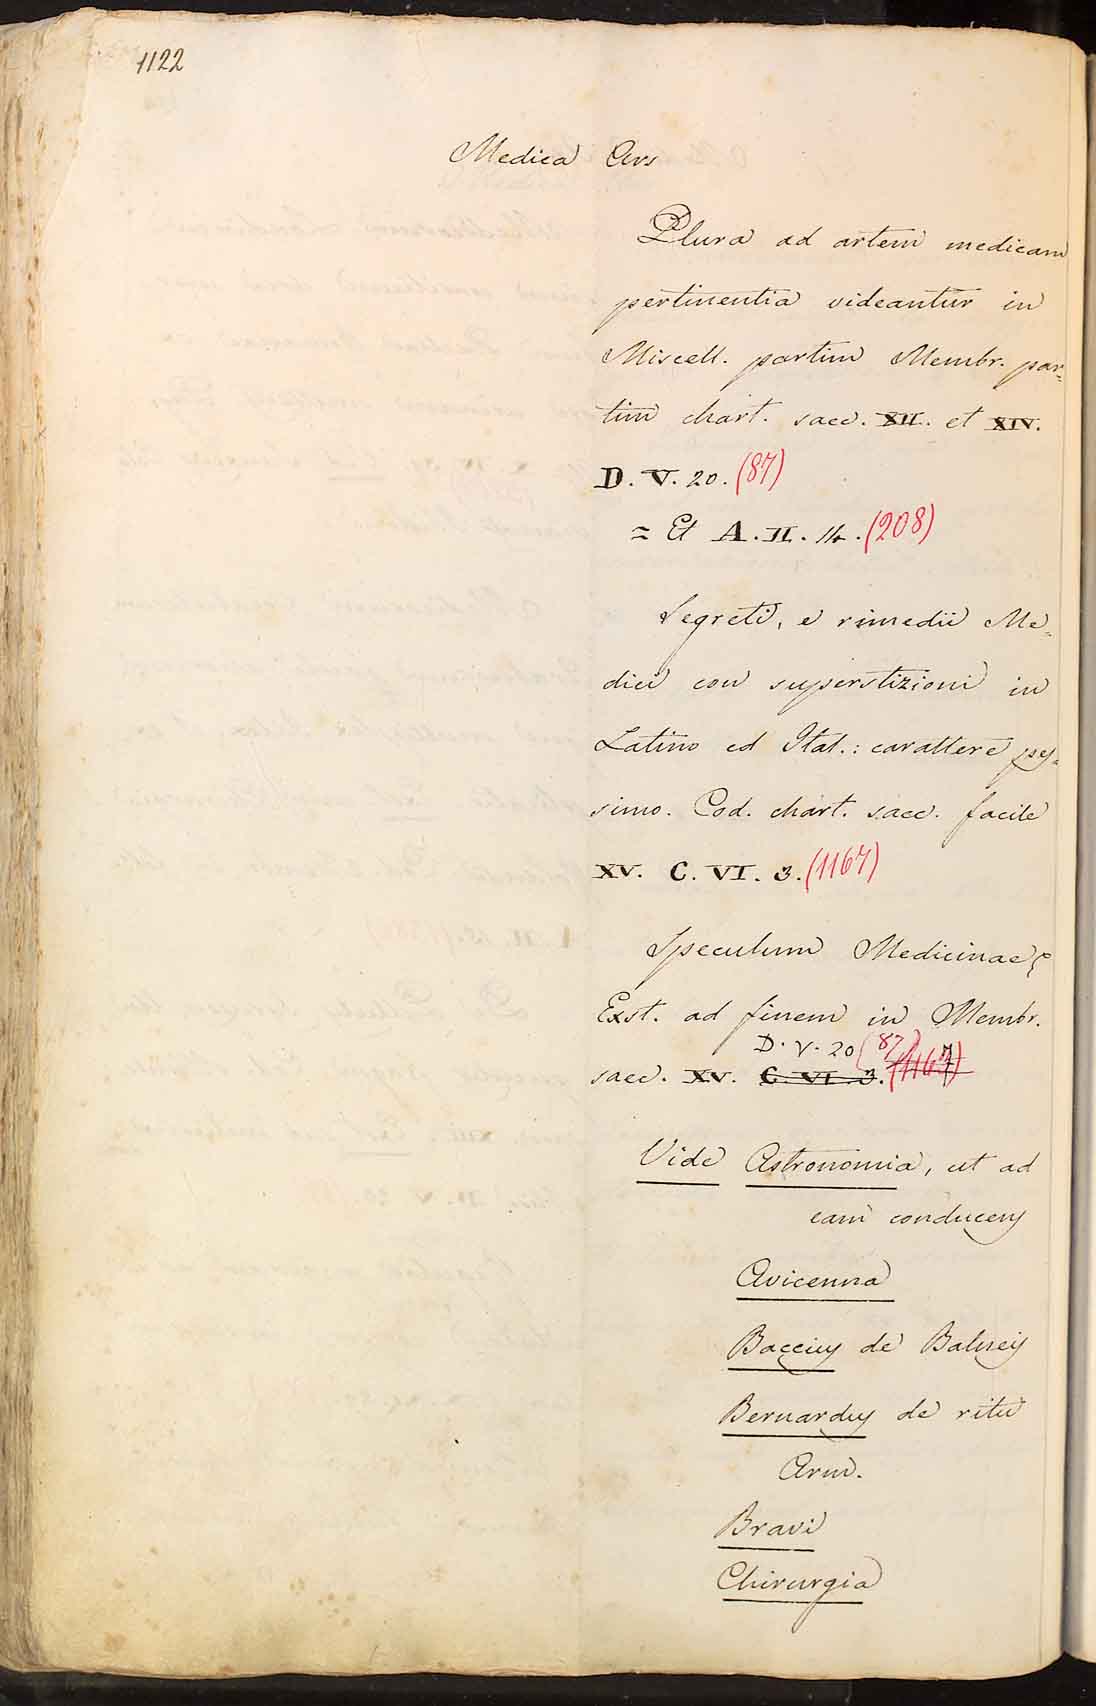 1122
Medica Ars
Plura ad artem medicam
pertinentia videantur in
Miscell. partim Membr. par-
tim chart. saec. XII. et XIV.
D. V. 20. (87)
= Et A. II. 14. (208)
Segreti, e rimedii Me-
dici con superstizioni in
Latino ed Ital.: carattere pes-
simo. Cod. chart. saec. facile
XV. C. VI. 3. (1167)
Speculum Medicinae
Exst. ad finem in Membr.
D. V. 20 (87)
saec. XV. C. VI. 3. (1167)
Vide Astronomia, ut ad
eam conducens
Avicenna
Baccius de Balneis
Bernardus de ritu
Arm.
Bravi
Chirurgia